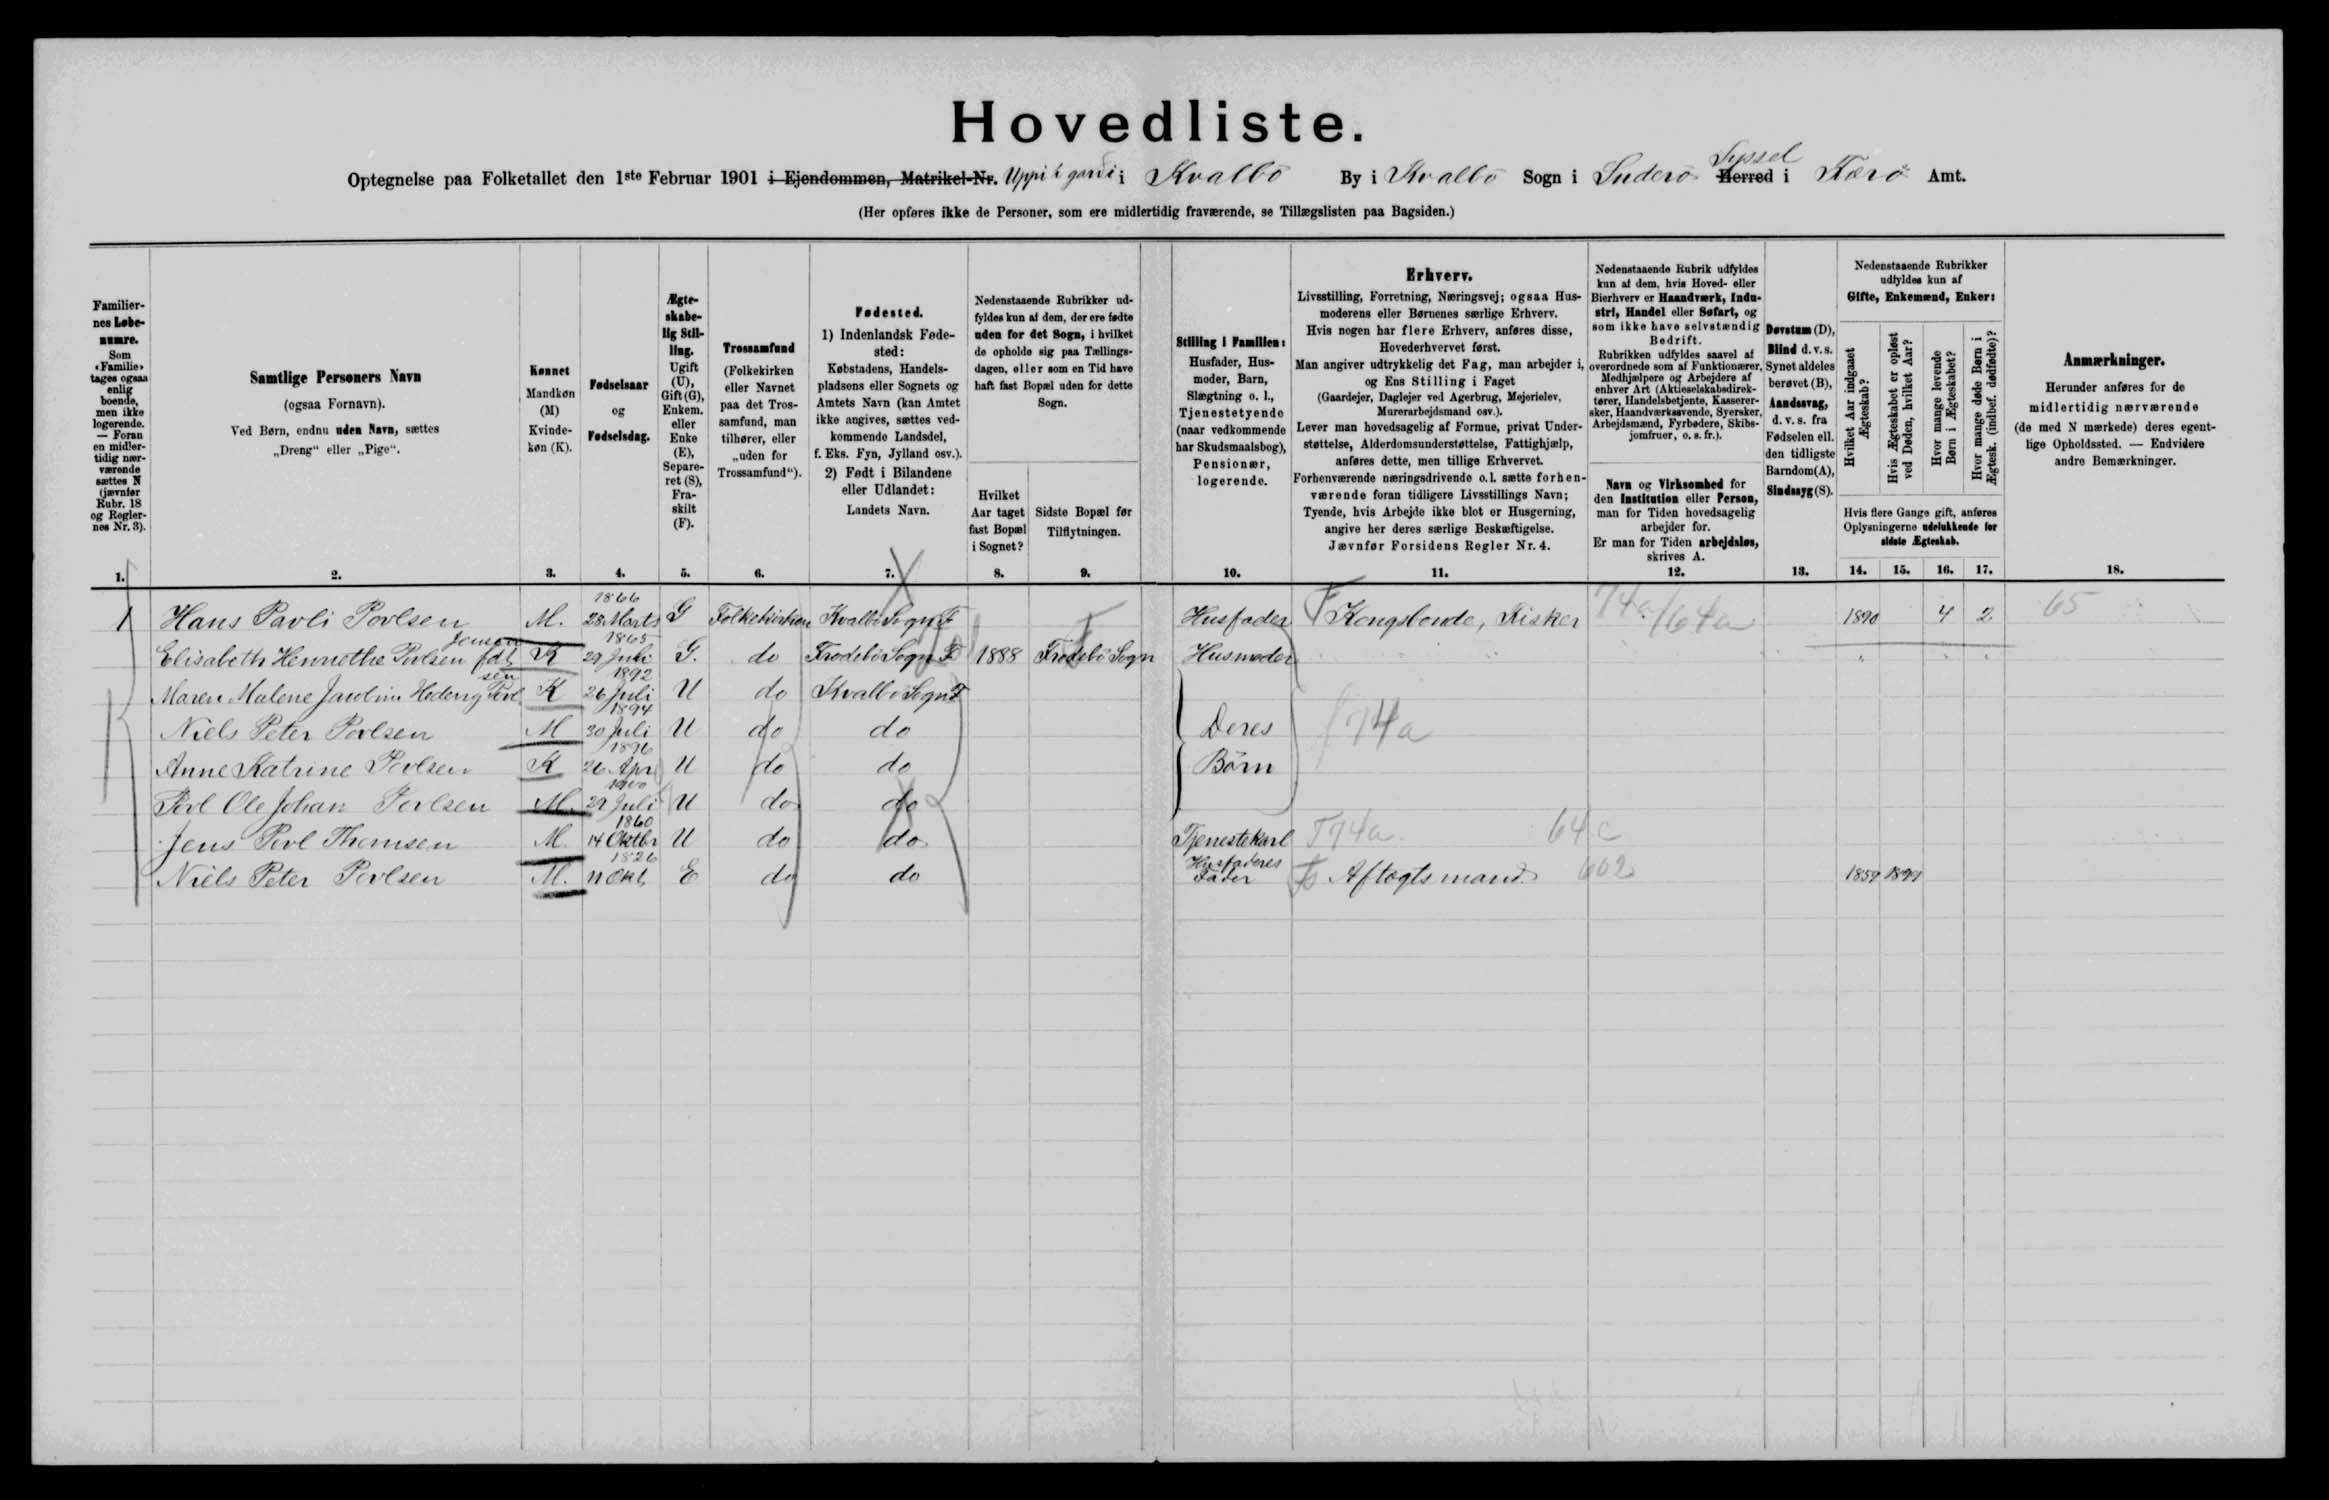 Hovedliste.
Optegnelse paa Folketallet den 1ste Februar 1901 i Ejendommen, Matrikel-Nr. Uppi i gardi i Kvalbö By i Kvalbö Sogn i Suderö Syssel Herred i Færø Amt.
(Her opføres ikke de Personer, som ere midlertidig fraværende, se Tillægslisten paa Bagsiden.)
Familiernes Løbenumre. Som «Familie» tages ogsaa enlig boende, men ikke logerende. — Foran en midlertidig nærværende sættes N (jævnfør Rubr. 18 og Reglernes Nr. 3).
Samtlige Personers Navn (ogsaa Fornavn). Ved Børn, endnu uden Navn, sættes „Dreng“ eller „Pige“.
Kønnet Mandkøn (M) Kvindekøn (K).
Fødselsaar og Fødselsdag.
Ægteskabelig Stilling. Ugift (U), Gift (G), Enkem. eller Enke (E), Separeret (S), Fraskilt (F).
Trossamfund (Folkekirken eller Navnet paa det Trossamfund, man tilhører, eller „uden for Trossamfund“).
Fødested. 1) Indenlandsk Fødested: Købstadens, Handelspladsens eller Sognets og Amtets Navn (kan Amtet ikke angives, sættes vedkommende Landsdel, f. Eks. Fyn, Jylland osv.). 2) Født i Bilandene eller Udlandet: Landets Navn.
Nedenstaaende Rubrikker udfyldes kun af dem, der ere fødte uden for det Sogn, i hvilket de opholde sig paa Tællingsdagen, eller som en Tid have haft fast Bopæl uden for dette Sogn.
Hvilket Aar taget fast Bopæl i Sognet?
Sidste Bopæl før Tilflytningen.
Stilling i Familien: Husfader, Husmoder, Barn, Slægtning o. l., Tjenestetyende (naar vedkommende har Skudsmaalsbog), Pensionær, logerende.
Erhverv.
Livsstilling, Forretning, Næringsvej; ogsaa Husmoderens eller Børnenes særlige Erhverv.
Hvis nogen har flere Erhverv, anføres disse, Hovederhvervet først.
Man angiver udtrykkelig det Fag, man arbejder i, og Ens Stilling i Faget (Gaardejer, Daglejer ved Agerbrug, Mejerielev, Murerarbejdsmand osv.).
Lever man hovedsagelig af Formue, privat Understøttelse, Alderdomsunderstøttelse, Fattighjælp, anføres dette, men tillige Erhvervet.
Forhenværende næringsdrivende o. l. sætte forhenværende foran tidligere Livsstillings Navn; Tyende, hvis Arbejde ikke blot er Husgerning, angive her deres særlige Beskæftigelse.
Jævnfør Forsidens Regler Nr. 4.
Nedenstaaende Rubrik udfyldes kun af dem, hvis Hoved- eller Bierhverv er Haandværk, Industri, Handel eller Søfart, og som ikke have selvstændig Bedrift.
Rubrikken udfyldes saavel af overordnede som af Funktionærer, Medhjælpere og Arbejdere af enhver Art (Aktieselskabsdirektører, Handelsbetjente, Kasserersker, Haandværkssvende, Syersker, Arbejdsmænd, Fyrbødere, Skibsjomfruer, o. s. fr.).
Navn og Virksomhed for den Institution eller Person, man for Tiden hovedsagelig arbejder for. Er man for Tiden arbejdsløs, skrives A.
Døvstum (D), Blind d. v. s. Synet aldeles berøvet (B), Aandssvag, d. v. s. fra Fødselen ell. den tidligste Barndom (A), Sindssyg (S).
Nedenstaaende Rubrikker udfyldes kun af Gifte, Enkemænd, Enker:
Hvilket Aar indgaaet Ægteskab?
Hvis Ægteskabet er opløst ved Døden, hvilket Aar?
Hvor mange levende Børn i Ægteskabet?
Hvor mange døde Børn i Ægtesk. (indbef. dødfødte)?
Hvis flere Gange gift, anføres Oplysningerne udelukkende for sidste Ægteskab.
Anmærkninger. Herunder anføres for de midlertidig nærværende (de med N mærkede) deres egentlige Opholdssted. — Endvidere andre Bemærkninger.
1. 2. 3. 4. 5. 6. 7. 8. 9. 10. 11. 12. 13. 14. 15. 16. 17. 18.
1 Hans Pavli Povlsen M. 1866 28 Marts G Folkekirken Kvalbö Sogn F Husfader F Kongsbonde, Fisker 74a/64a 1890 4 2 65
Elisabeth Hennethe Povlsen fdt. Jensen K 1865 29 Juli G. do Frodebö Sogn F 1888 Frodebö Sogn Husmoder
Maren Malene Jacobine Hedevig Povlsen K 1892 26 Juli U do Kvalbö Sogn F
Niels Peter Povlsen M 1894 30 Juli U do do Deres 74a
Anne Katrine Povlsen K 1896 26 Apr U do do Börn
Povl Ole Johan Povlsen M. 1900 29 Juli U do do
Jens Povl Thomsen M. 1860 14 Oktbr U do do Tjenestekarl F74a 64c
Niels Peter Povlsen M. 1826 11 Okt. E do do Husfaderes Fader Fo Aftægtsmand 602 1859 1899